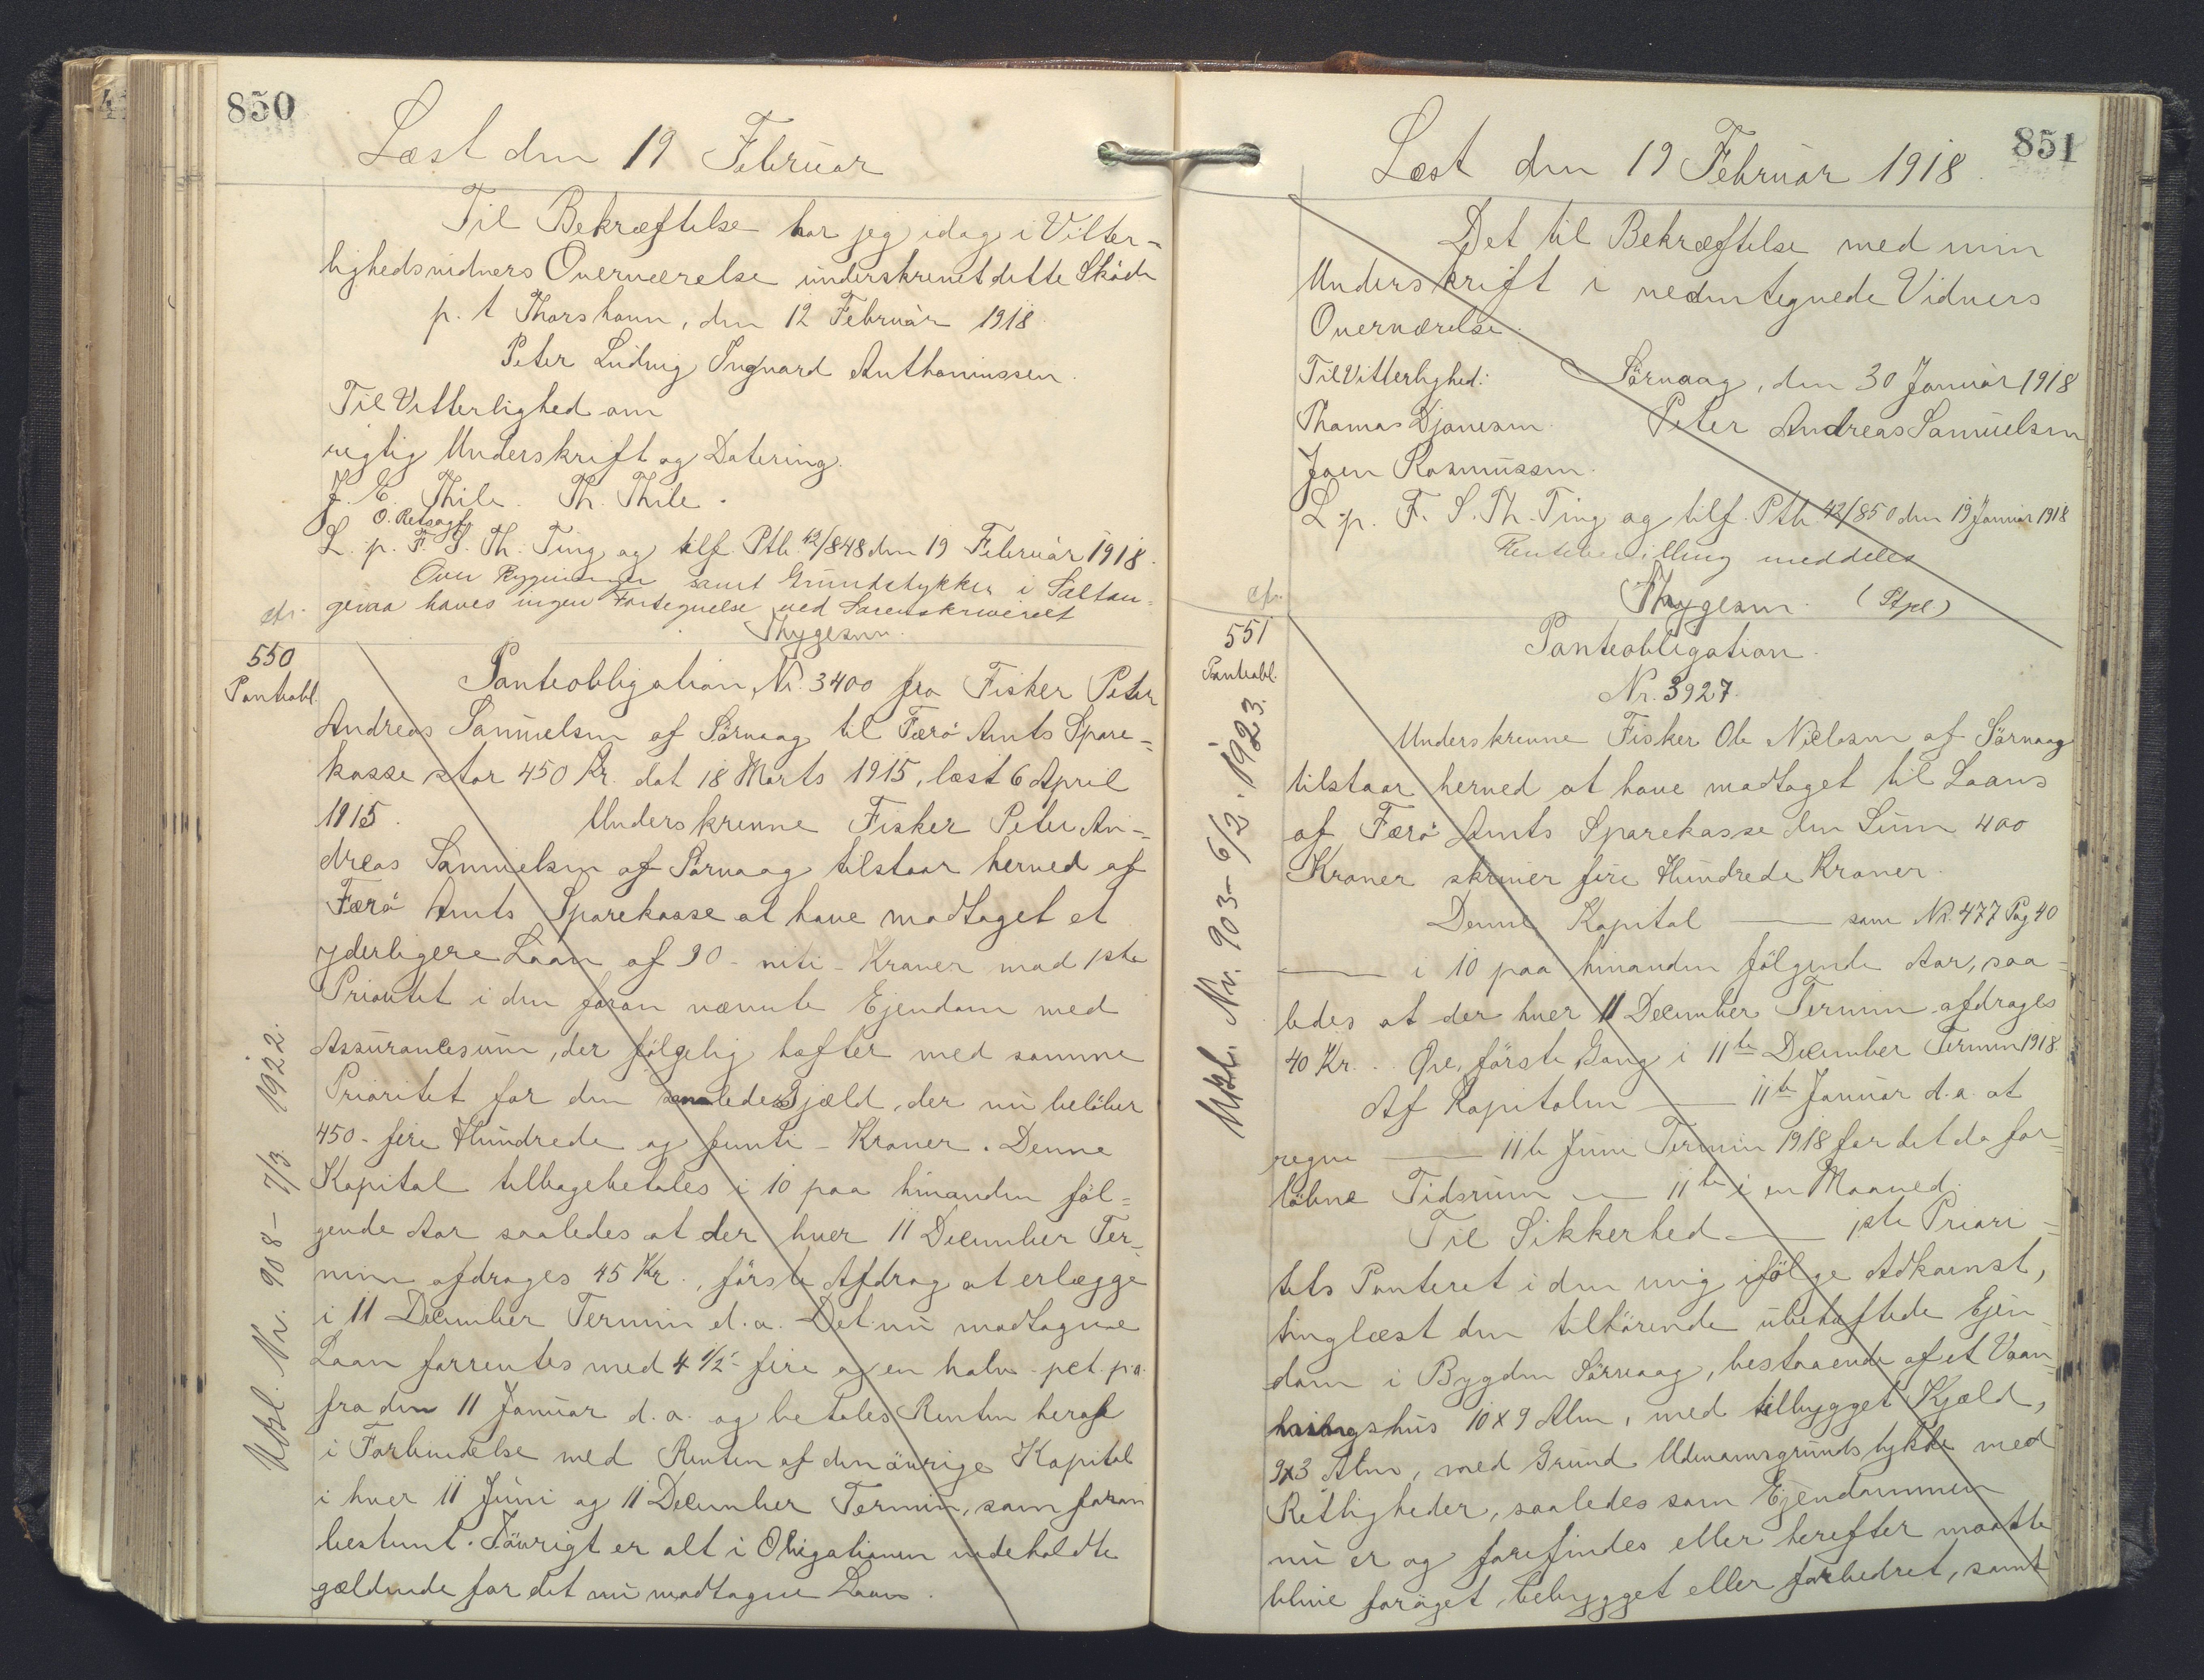 850
Læst den 19 Februar
Til Bekræftelse har jeg idag i Vitter-
lighedsvidners Overværelse underskrevet dette Skøde
p. t Thorshavn, den 12 Februar 1918.
Peter Ludvig Ingvard Anthoniussen.
Til Vitterlighed om
rigtig Underskrift og Datering.
J. E. Thile. Th. Thile.
O. Retssagf.
L. p. F. S. Th. Ting og tilf. Ptb. 42/848 den 19 Februar 1918.
Over Bygningen samt Grundstykker i Saltan-
gevaa haves ingen Fortegnelse ved Sorenskriveriet
Thygesen.
cfr.
550
Panteobl.
Panteobligation, Nr. 3400 fra Fisker Peter
Andreas Samuelsen af Sörvaag til Færö Amts Spare-
kasse stor 450 Kr. dat 18 Marts 1915, læst 6 April
1915. Underskrevne Fisker Peter An-
dreas Samuelsen af Sörvaag tilstaar herved af
Færö Amts Sparekasse at have modtaget et
yderligere Laan af 90 - niti - Kroner mod 1ste
Prioritet i den foran nævnte Ejendom med
Assurancesum, der fölgelig hæfter med samme
Prioritet for den samlede Gjæld, der nu belöber
450 - fire Hundrede og femti - Kroner. Denne
Kapital tilbagebetales i 10 paa hinanden föl-
gende Aar saaledes at der hver 11 December Ter-
min afdrages 45 Kr., förste Afdrag at erlægge
i 11 December Termin d. a. Det nu modtagne
Laan forrentes med 4 1/2 - fire og en halv - pct. p.a.
fra den 11 Januar d. a. og betales Renten heraf
i Forbindelse med Renten af den övrige Kapital
i hver 11 Juni og 11 December Termin, som foran
bestemt. Iövrigt er alt i Obligationen indeholdte
gældende for det nu modtagne Laan.
Udsl. Nr. 908 - 7/3 1922.
851
Læst den 19 Februar 1918.
Det til Bekræftelse med min
Underskrift i nedentegnede Vidners
Overværelse.
Til Vitterlighed: Sörvaag, den 30 Januar 1918
Thomas Djonesen. Peter Andreas Samuelsen
Joen Rasmussen.
L. p. F. S. Th. Ting og tilf. Ptb 42/850 den 19 Januar 1918
Rentebevilling meddeles
Thygesen. (Stpl)
cfr.
551
Panteobl.
Panteobligation.
Nr. 3927.
Underskrevne Fisker Ole Nielsen af Sörvaag
tilstaar herved at have modtaget til Laans
af Færö Amts Sparekasse den Sum 400
Kroner skriver fire Hundrede Kroner.
Denne Kapital —— som Nr. 477 Pag 40
—— i 10 paa hinanden fölgende Aar, saa-
ledes at der hver 11 December Termin afdrages
40 Kr. . Øre, förste Gang i 11te December Termin 1918.
Af Kapitalen —— 11te Januar d. a. at
regne —— 11te Juni Termin 1918 for det da for-
löbne Tidsrum —— 11te i en Maaned.
Til Sikkerhed —— 1ste Priori-
tets Panteret i den mig ifölge Adkomst,
tinglæst den tilhörende ubehæftede Ejen-
dom i Bygden Sörvaag, bestaaende af et Vaan-
hringshus 10 x 9 Alen, med tilbygget Kjæld,
9x3 Alen, med Grund Udenomsgrundstykke med
Rettigheder, saaledes som Ejendommen
nu er og forefindes eller herefter maatte
blive foröget, bebygget eller forbedret, samt
Udsl. Nr. 903 - 6/2. 1923.